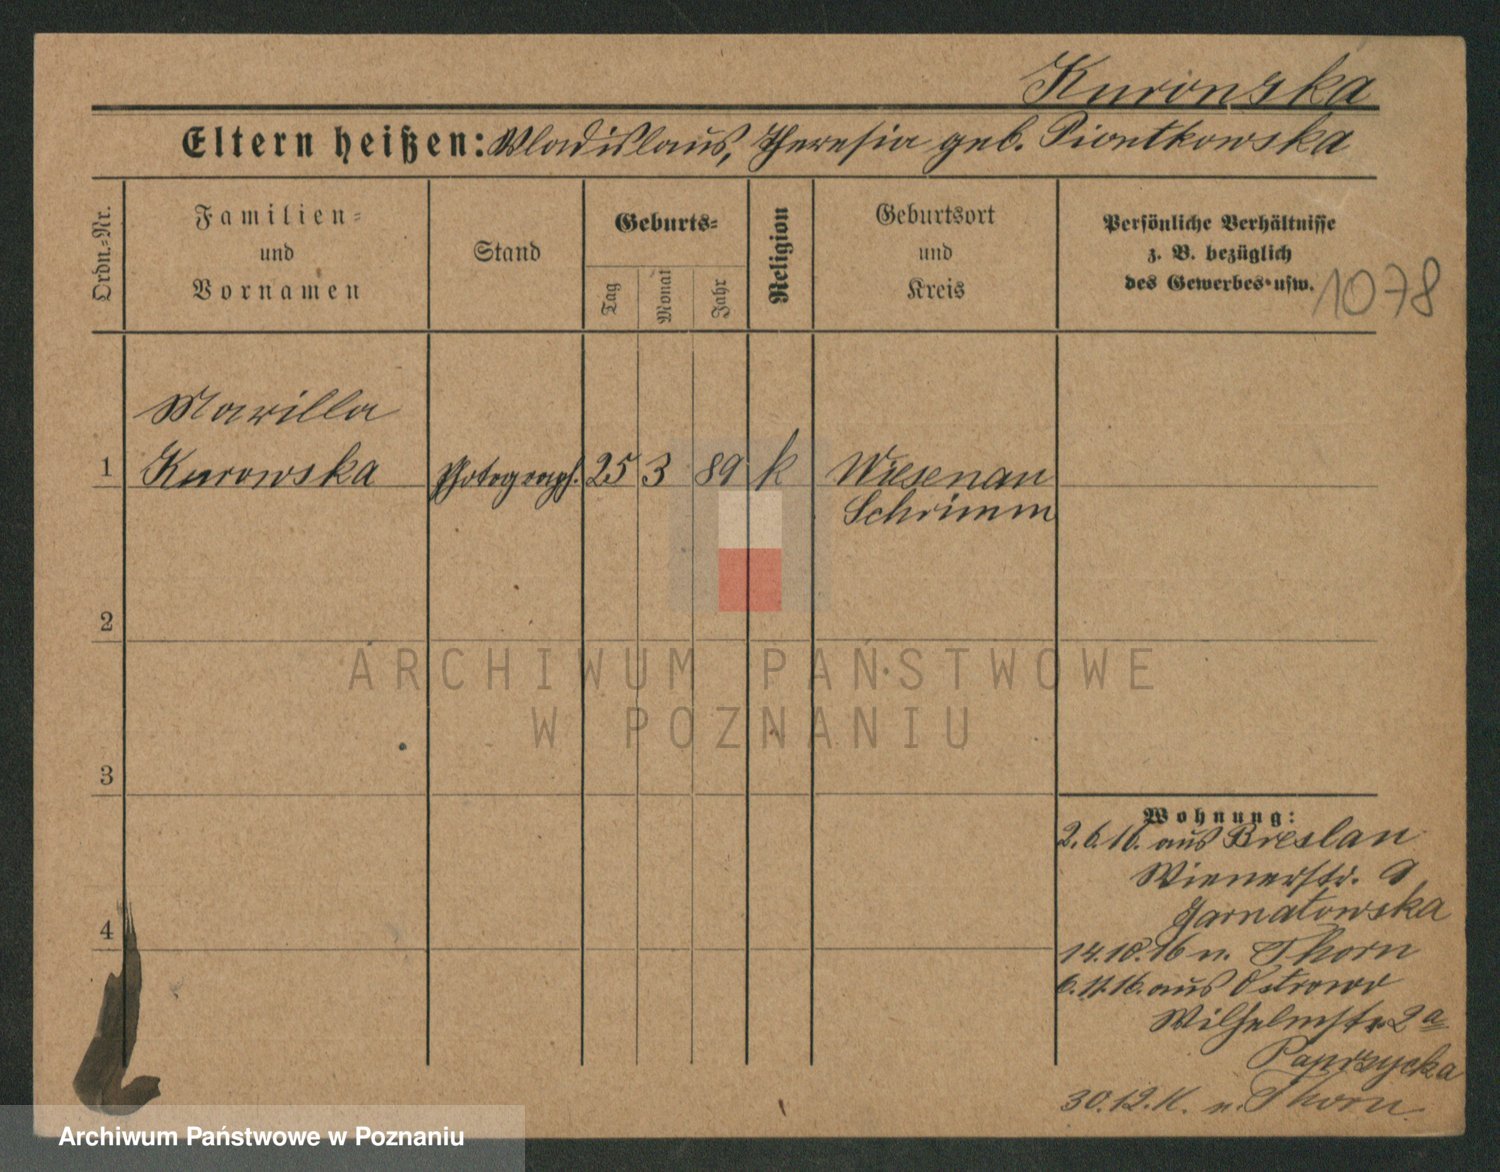 Kurowska
Eltern heißen: Wladislaus, Theresia geb. Piontkowska
Ordn.=Nr.
Familien=
und
Vornamen
Stand
Geburts=
Tag
Monat
Jahr
Religion
Geburtsort
und
Kreis
Persönliche Verhältnisse
z. B. bezüglich
des Gewerbes usw.
1078
Marilla
1 Kurowska Photograph. 25 3 89 k Wiesenau
Schrimm
2
3
4
Wohnung:
2.6.16. aus Breslau
Wienerstr. 9
Jarnatowska
14.10.16 n. Thorn
6.11.16. aus Ostrowo
Wilhelmstr. 2a
Paprzycka
30.12.16. n. Thorn.
ARCHIWUM PAŃSTWOWE
W POZNANIU
Archiwum Państwowe w Poznaniu